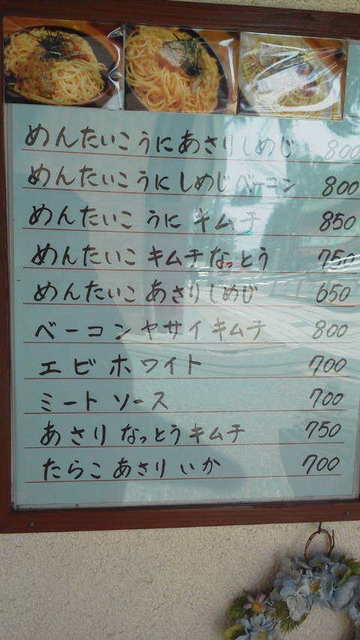 めんたいこうにあさりしめじ 800
めんたいこうにしめじベーコン 800
めんたいこ うに キムチ 850
めんたいこ キムチなっとう 750
めんたいこ あさりしめじ 650
ベーコンヤサイキムチ 800
エビホワイト 700
ミートソース 700
あさり なっとうキムチ 750
たらこ あさり いか 700